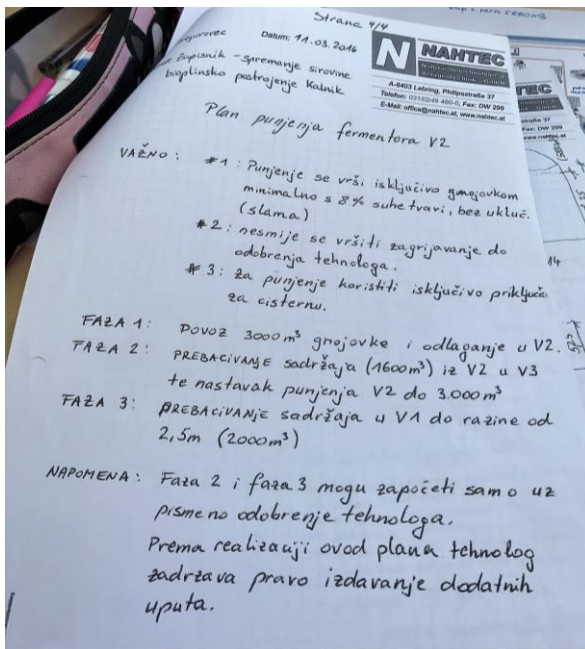 Strana 4/4
Datum: 11.03.2016
Zapisnik - spremanje sirovine
bioplinsko postrojenje Kalnik
NAHTEC
A-8403 Lebring, Philipsstraße 37
Telefon: 03182/49 460-0, Fax: DW 299
E-Mail: office@nahtec.at, www.nahtec.at
Plan punjenja fermentora V2
VAŽNO: #1: Punjenje se vrši isključivo gnojovkom
minimalno s 8% suhe tvari, bez uključ.
(slama)
#2: nesmije se vršiti zagrijavanje do
odobrenja tehnologa.
#3: za punjenje koristiti isključivo priključak
za cisternu.
FAZA 1: DOVOZ 3000m³ gnojovke i odlaganje u V2.
FAZA 2: PREBACIVANJE sadržaja (1600m³) iz V2 u V3
te nastavak punjenja V2 do 3.000m³
FAZA 3: PREBACIVANJE sadržaja u V1 do razine od
2,5m (2000m³)
NAPOMENA: Faza 2 i faza 3 mogu započeti samo uz
pismeno odobrenje tehnologa.
Prema realizaciji ovod plana tehnolog
zadrzava pravo izdavanje dodatnih
uputa.
TEC
straße 37
Fax: DW 299
www.nahtec.at
14